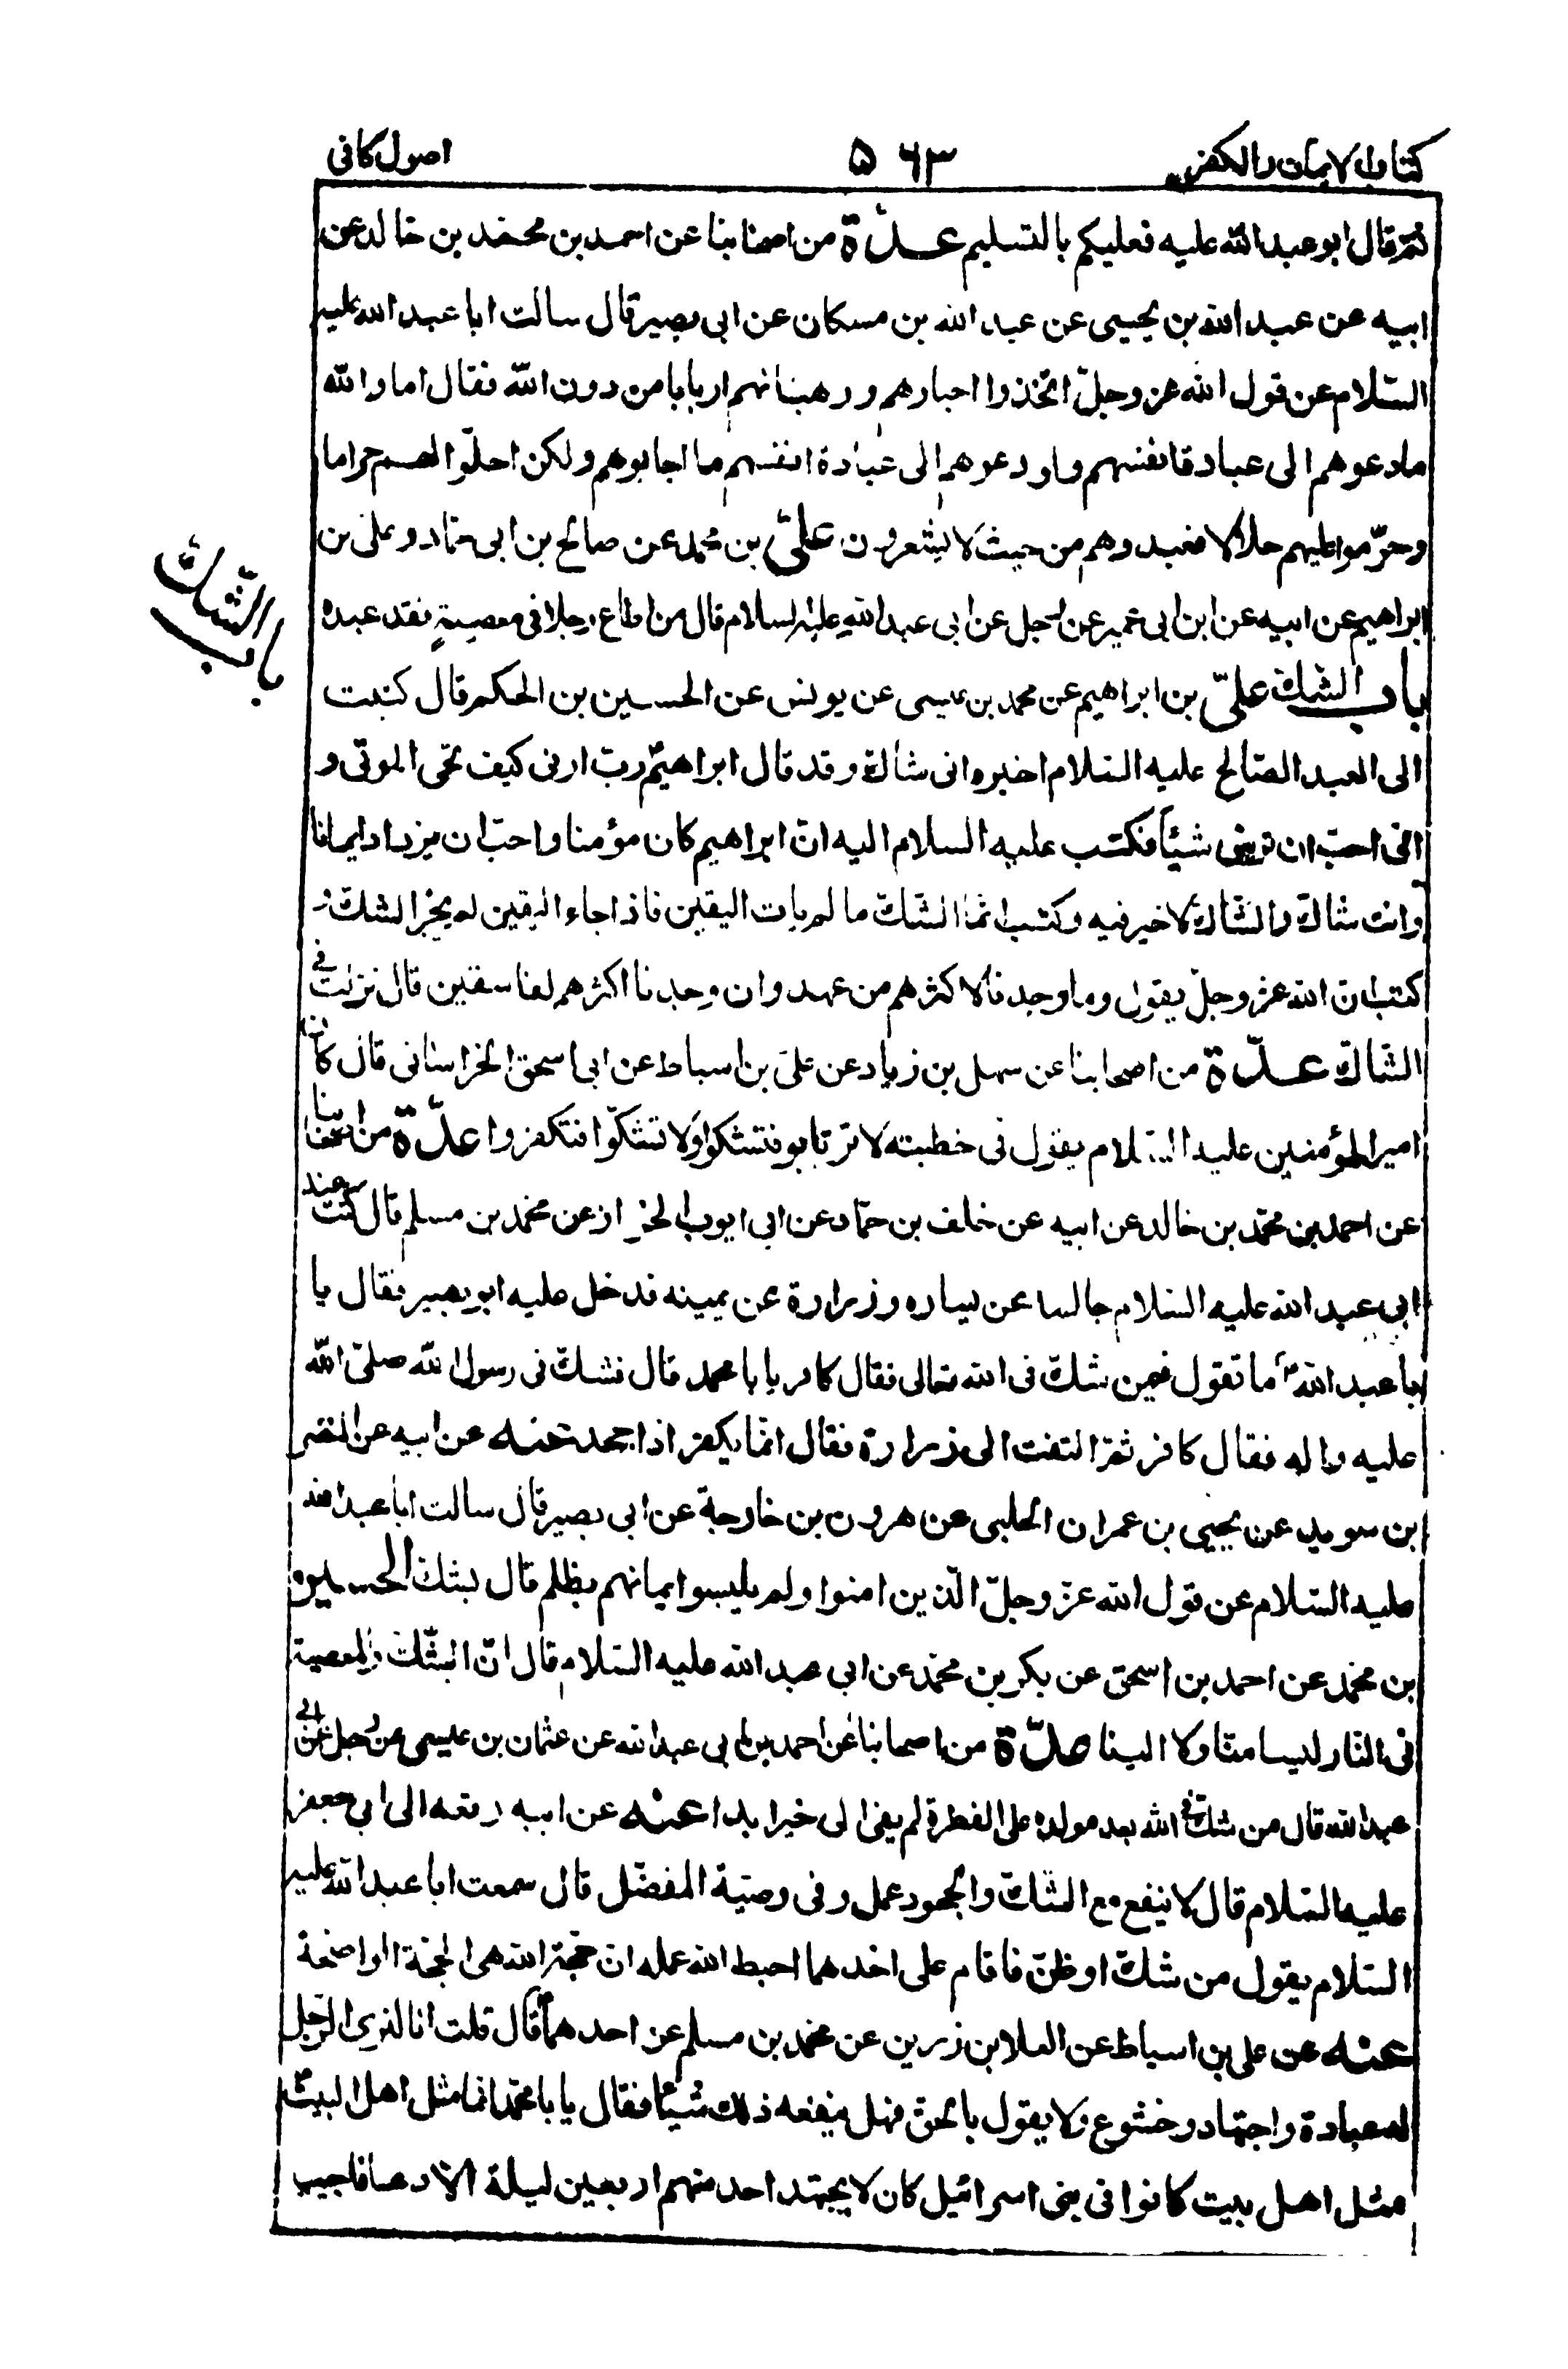 كتاب الايمان والكفر
۵۶۳
اصول كافى
ثم قال ابو عبد الله عليه فعليكم بالتسليم عدّة من اصحابنا عن احمد بن محمد بن خالد عن
ابيه عن عبد الله بن يحيى عن عبد الله بن مسكان عن ابى بصير قال سالت ابا عبد الله عليه
السّلام عن قول الله عز وجلّ اتّخذوا احبارهم ورهبانهم اربابا من دون الله فقال اما والله
ما دعوهم الى عبادة انفسهم ولو دعوهم الى عبادة انفسهم ما اجابوهم ولكن احلّوا لهم حراما
وحرّموا عليهم حلالا فعبدوهم من حيث لا يشعرون علىّ بن محمد عن صالح بن ابى حمّاد وعلى بن
ابراهيم عن ابيه عن ابن ابى عمير عن رجل عن ابى عبد الله عليه السلام قال من اطاع رجلا فى معصيةٍ فقد عبده
باب الشك
باب الشك علىّ بن ابراهيم عن محمد بن عيسى عن يونس عن الحسين بن الحكم قال كتبت
الى العبد الصّالح عليه السّلام اخبره انى شاكّ وقد قال ابراهيمؑ ربّ ارنى كيف تحى الموتى و
انى احبّ ان ترينى شيئاً فكتب عليه السلام اليه انّ ابراهيم كان مؤمنا واحبّ ان يزداد ايمانا
وانت شاكّ والشّاكّ لا خير فيه وكتب انّما الشّكّ ما لم يات اليقين فاذا جاء اليقين لم يجز الشكّ و
كتب انّ الله عز وجلّ يقول وما وجدنا لاكثرهم من عهد وان وجدنا اكثرهم لفاسقين قال نزلت فى
الشّاكّ عدّة من اصحابنا عن سهل بن زياد عن علىّ بن اسباط عن ابى اسحق الخراسانى قال كان
امير المؤمنين عليه السّلام يقول فى خطبته لا ترتابوا فتشكوا ولا تشكّوا فتكفروا عدّة من اصحابنا
عن احمد بن محمّد بن خالد عن ابيه عن خلف بن حمّاد عن ابى ايوب الخزاز عن محمّد بن مسلم قال كنت عند
ابى عبد الله عليه السّلام جالسا عن يساره وزرارة عن يمينه فدخل عليه ابو بصير فقال يا
ابا عبد اللهؑ ما تقول فيمن شكّ فى الله تعالى فقال كافر يا با محمد قال فشكّ فى رسول الله صلىّ الله
عليه واله فقال كافر ثمّ التفت الى زرارة فقال انّما يكفر اذا جحد عنه عن ابيه عن النضر
بن سويد عن يحيى بن عمران الحلبى عن هرون بن خارجة عن ابى بصير قال سالت ابا عبد الله
عليه السّلام عن قول الله عزّ وجلّ الّذين امنوا ولم يلبسوا ايمانهم بظلم قال بشك الحسين
بن محمّد عن احمد بن اسحق عن بكر بن محمّد عن ابى عبد الله عليه السّلام قال انّ الشّكّ والمعصية
فى النّار ليسا منّا ولا الينا عدّة من اصحابنا عن احمد بن ابى عبد الله عن عثمان بن عيسى عن رجل عن ابى
عبد الله قال من شكّ فى الله بعد مولده على الفطرة لم يفئ الى خير ابدا عنه عن ابيه رفعه الى ابى جعفر
عليه السّلام قال لا ينفع مع الشّكّ والجحود عمل وفى وصيّة المفضّل قال سمعت ابا عبد الله عليه
السّلام يقول من شكّ او ظنّ فاقام على احدهما احبط الله عمله ان حجّة الله هى الحجّة الواضحة
عنه عن على بن اسباط عن العلا بن زرين عن محمّد بن مسلم عن احدهماؑ قال قلت انا لنرى الرّجل
له عبادة واجتهاد وخشوع ولا يقول بالحق فهل ينفعه ذلك شيئا فقال يا با محمّد انما مثل اهل البيتؑ
مثل اهل بيت كانوا فى بنى اسرائيل كان لا يجتهد احد منهم اربعين ليلة الّا دعا فاجيب